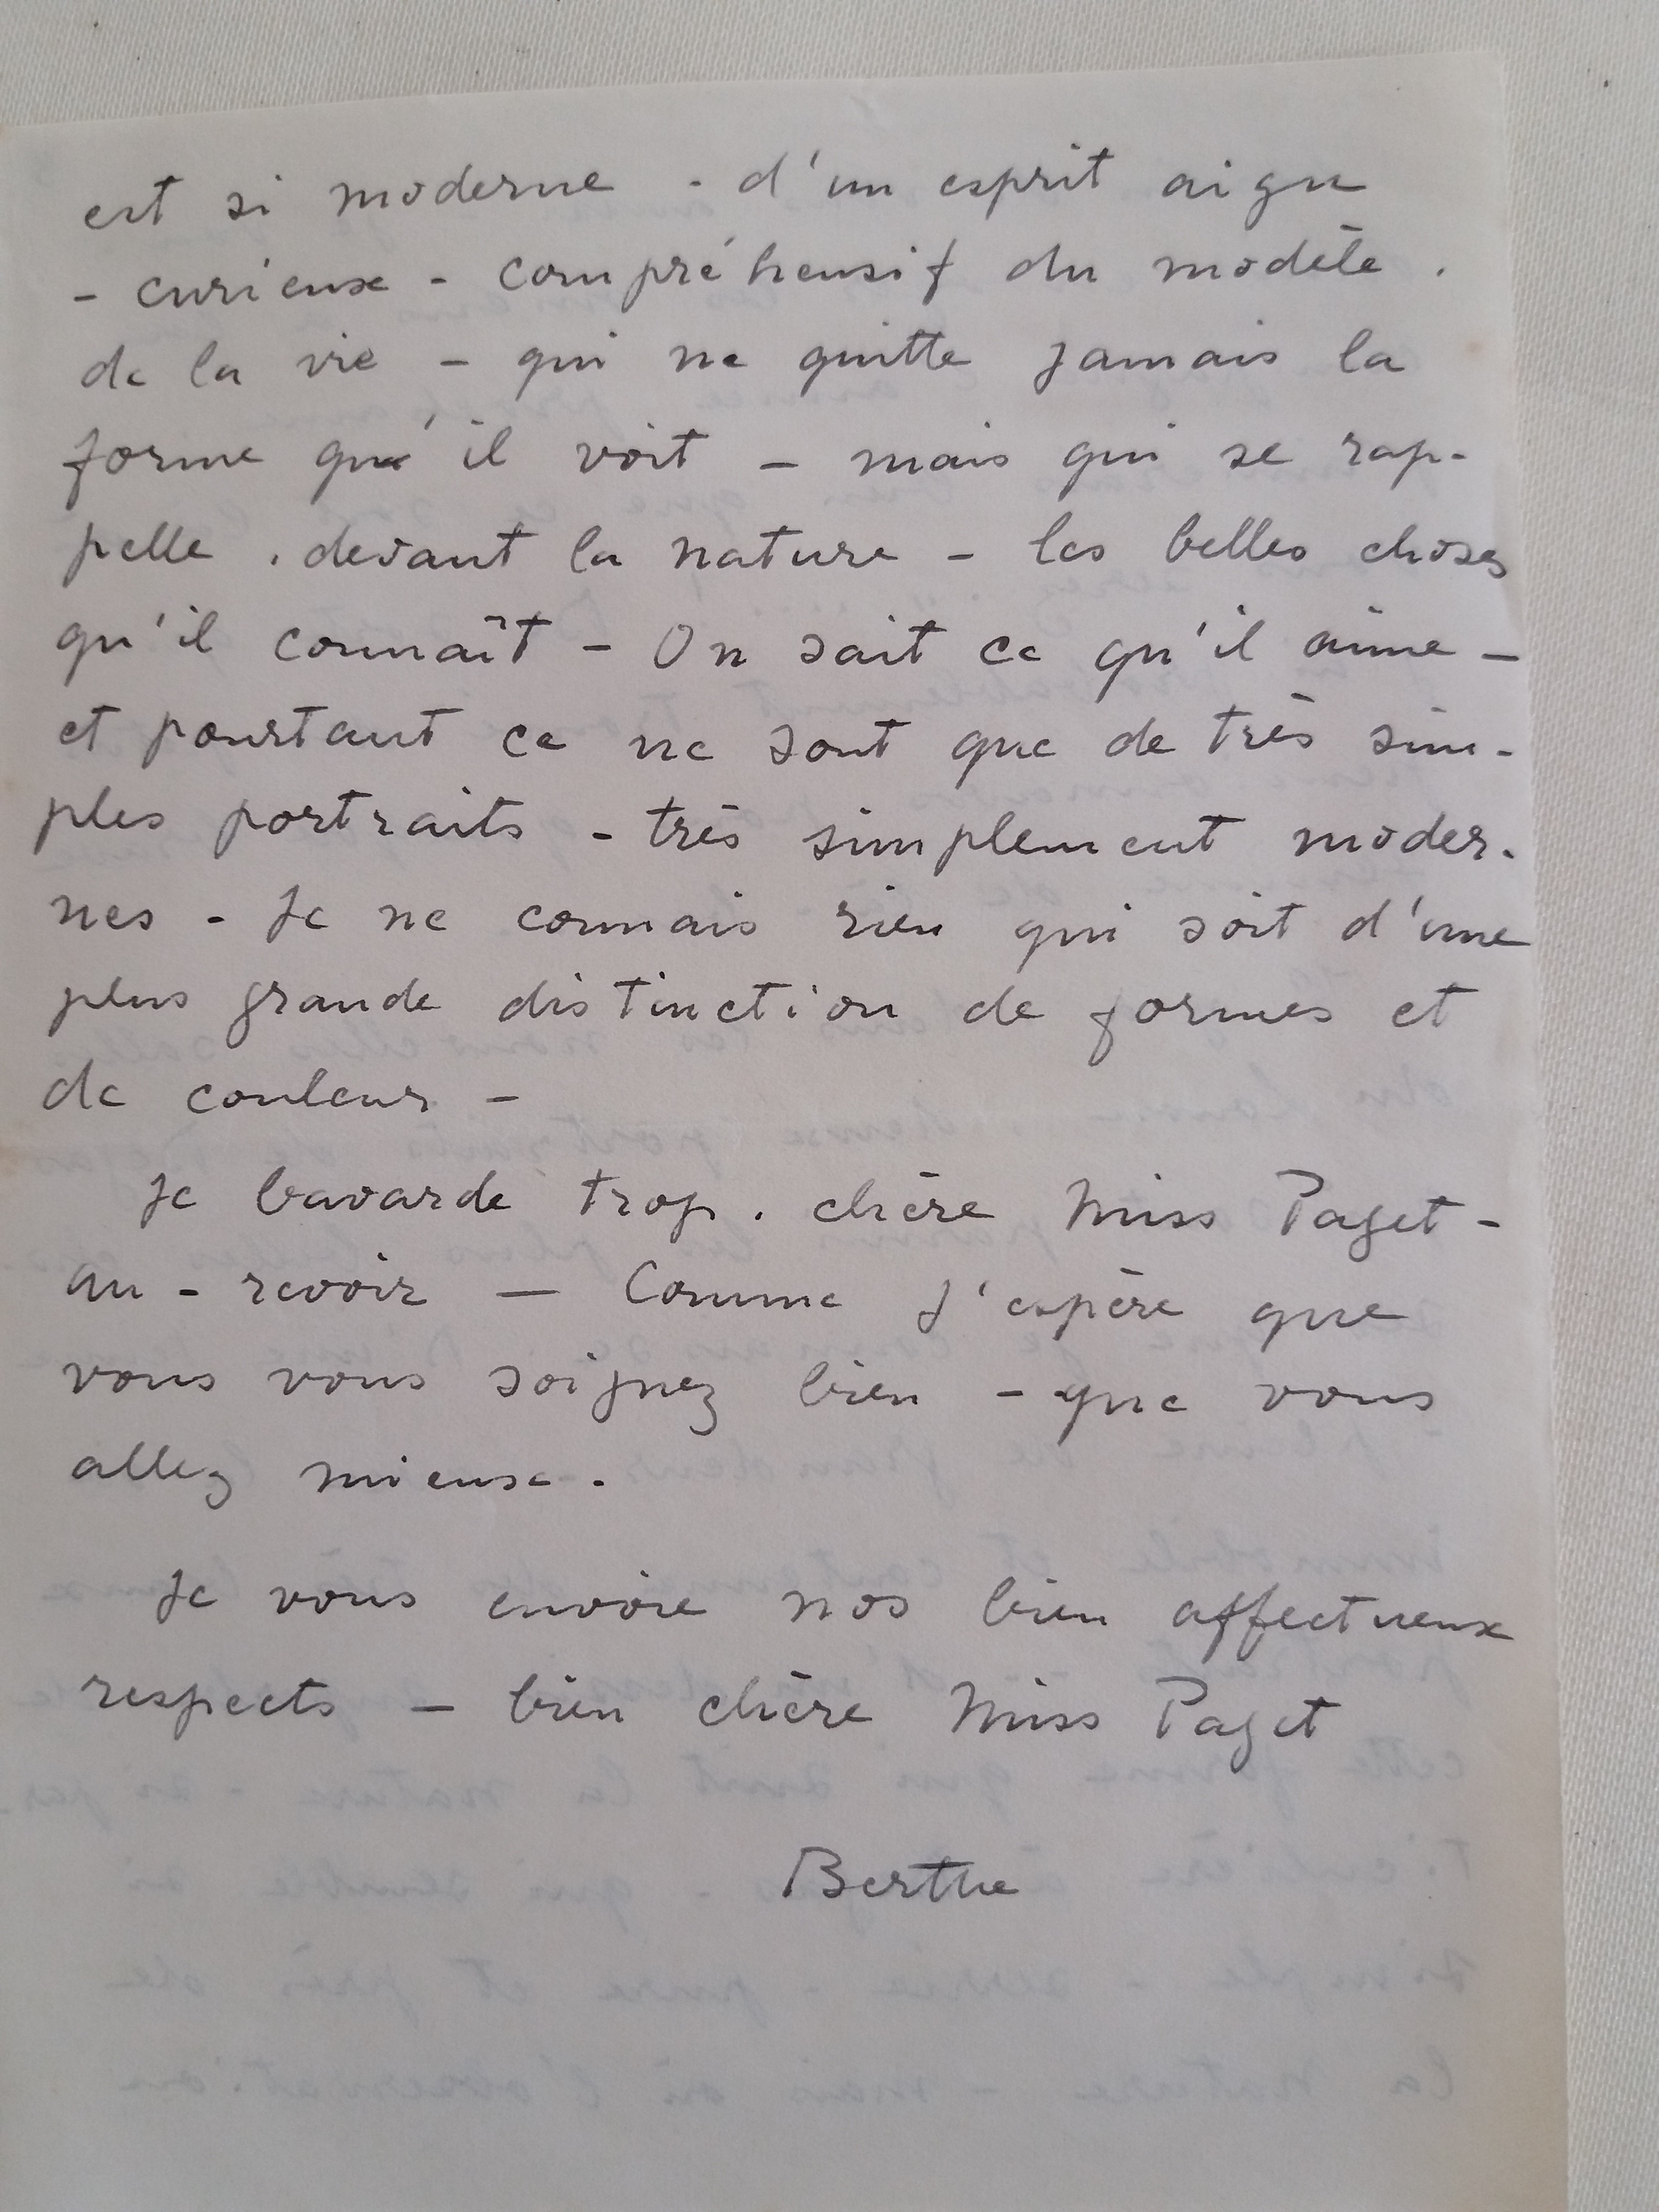 est si moderne - d'un esprit aigu
- curieux - compréhensif du modèle.
de la vie - qui ne quitte jamais la
forme qu'il voit - mais qui se rap-
pelle. devant la nature - les belles choses
qu'il connaît - On sait ce qu'il aime -
et pourtant ce ne sont que de très sim-
ples portraits - très simplement moder-
nes - Je ne connais rien qui soit d'une
plus grande distinction de formes et
de couleur -
Je bavarde trop. chère Miss Paget -
au - revoir — Comme j'espère que
vous vous soignez bien - que vous
allez mieux.
Je vous envoie nos bien affectueux
respects - bien chère Miss Paget
Berthe